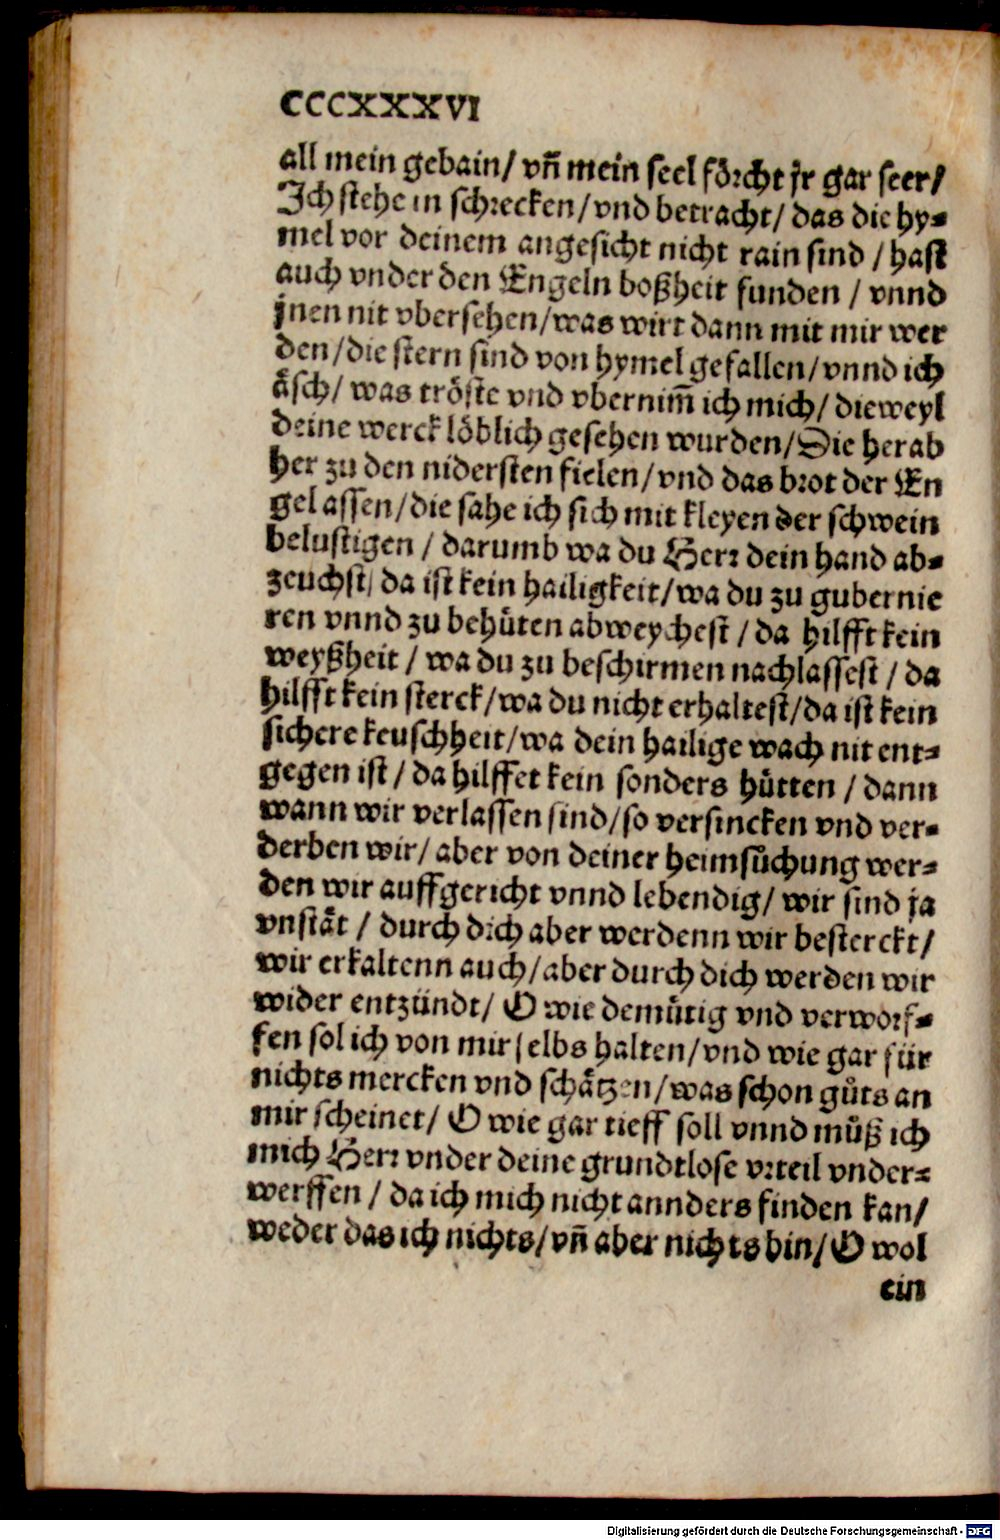 CCCXXXVI
all mein gebain/ vñ mein seel förcht jr gar seer/
Ich stehe in schrecken/vnd betracht/ das die hy-
mel vor deinem angesicht nicht rain sind / hast
auch vnder den Engeln boßheit funden / vnnd
jnen nit vbersehen/was wirt dann mit mir wer
den/die stern sind von hymel gefallen/vnnd ich
äsch/ was tröste vnd vbernim̃ ich mich/ dieweyl
deine werck löblich gesehen wurden/Die herab
her zu den nidersten fielen/vnd das brot der En
gel assen/die sahe ich sich mit kleyen der schwein
belustigen / darumb wa du Herr dein hand ab-
zeuchst/ da ist kein hailigkeit/wa du zu gubernie
ren vnnd zu behüten abweychest / da hilfft kein
weyßheit / wa du zu beschirmen nachlassest / da
hilfft kein sterck/wa du nicht erhaltest/da ist kein
sichere keuschheit/wa dein hailige wach nit ent-
gegen ist / da hilffet kein sonders hütten / dann
wann wir verlassen sind/so versincken vnd ver-
derben wir/ aber von deiner heimsůchung wer-
den wir auffgericht vnnd lebendig/ wir sind ja
vnstät / durch dich aber werdenn wir besterckt/
wir erkaltenn auch/aber durch dich werden wir
wider entzündt/ O wie demütig vnd verworf-
fen sol ich von mir selbs halten/vnd wie gar für
nichts mercken vnd schätzen/was schon gůts an
mir scheinet/ O wie gar tieff soll vnnd můß ich
mich Herr vnder deine grundtlose vrteil vnder-
werffen / da ich mich nicht annders finden kan/
weder das ich nichts/vñ aber nichts bin/O wol
ein
Digitalisierung gefördert durch die Deutsche Forschungsgemeinschaft - DFG